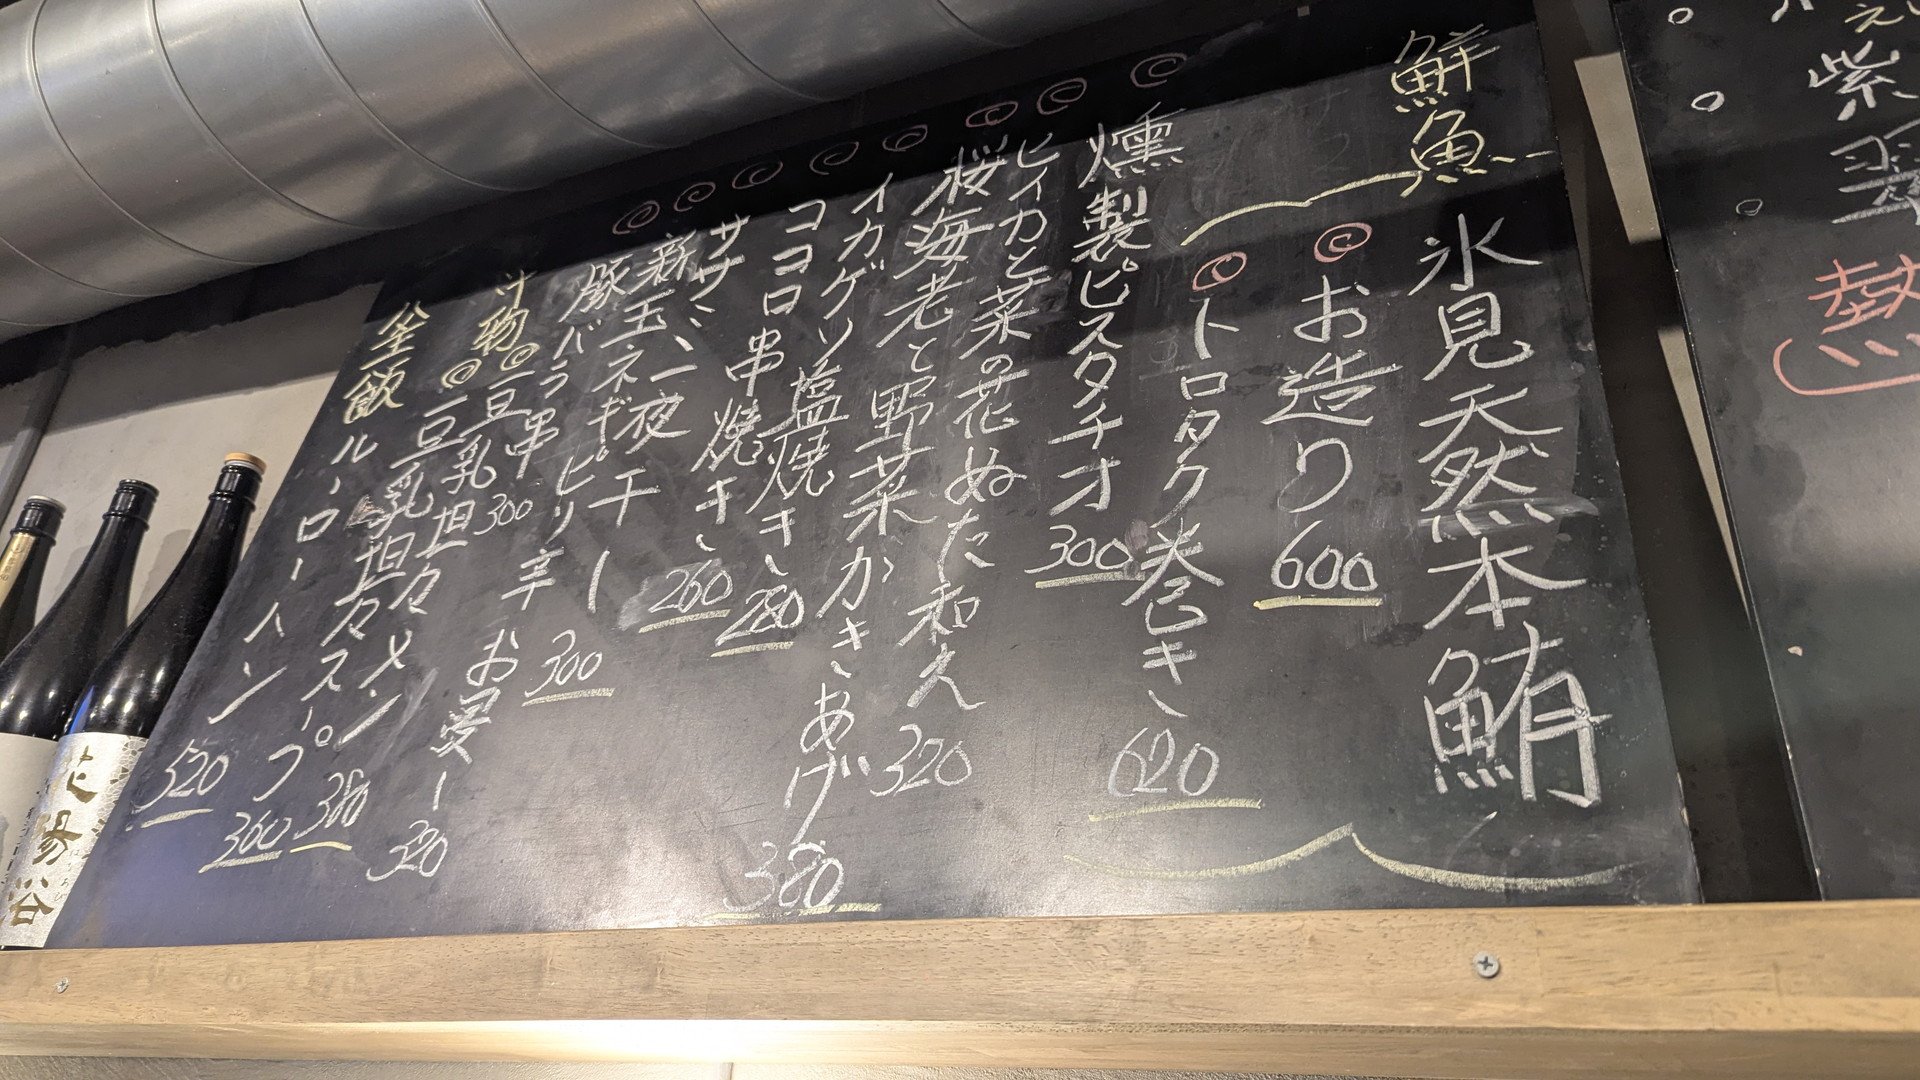 鮮魚
氷見天然本鮪
お造り 600
トロタク巻き 620
燻製ピスタチオ 300
ヒイカと菜の花ぬた和え 320
桜海老と野菜かきあげ 380
イカゲソ塩焼き 280
ココロ串焼き 260
ササミ一夜干し
新玉ネギピリ辛 300
豚バラ串 300
汁物
豆乳坦々メン 380
豆乳坦々スープ 360
釜飯
ルーローハン 520
320
花陽浴
紫
熱